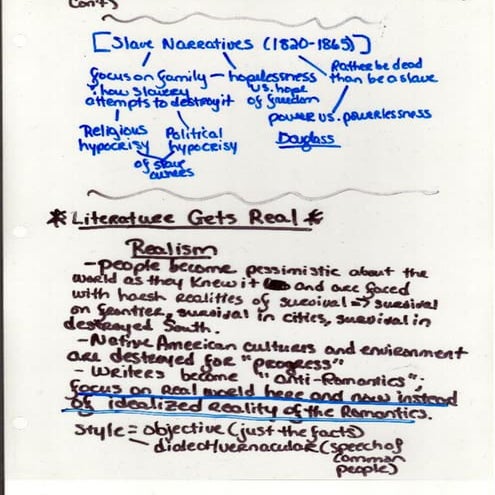 cont's
[Slave Narratives (1820-1865)]
focus on family — hopelessness
& how slavery vs. hope
attempts to destroy it of freedom
Rather be dead
than be a slave
power vs. powerlessness
Douglass
Religious Political
hypocrisy hypocrisy
of slave
owners
* Literature Gets Real *
Realism
- people become pessimistic about the
world as they knew it and are faced
with harsh realities of survival => survival
on frontier, survival in cities, survival in
destroyed South.
- Native American cultures and environment
are destroyed for "progress"
- Writers become "anti-Romantics";
focus on real world here and now instead
of idealized reality of the Romantics.
style = objective (just the facts)
- dialect/vernacular (speech of
common
people)